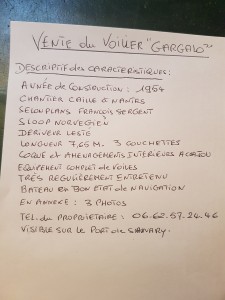 VENTE du VOILIER "GARGALO"
DESCRIPTIF DES CARACTERISTIQUES:
ANNÉE DE CONSTRUCTION: 1964
CHANTIER CAILLE à NANTES
SELON PLANS FRANÇOIS SERGENT
SLOOP NORVEGIEN
DERIVEUR LESTE
LONGUEUR 7,65 M. 3 COUCHETTES
COQUE ET AMENAGEMENTS INTERIEURS ACAJOU
EQUIPEMENT COMPLET DE VOILES
TRÈS REGULIÈREMENT ENTRETENU
BATEAU EN BON ETAT DE NAVIGATION
EN ANNEXE: 3 PHOTOS
TEL. DU PROPRIETAIRE: 06.62.57.24.46
VISIBLE SUR LE PORT DE